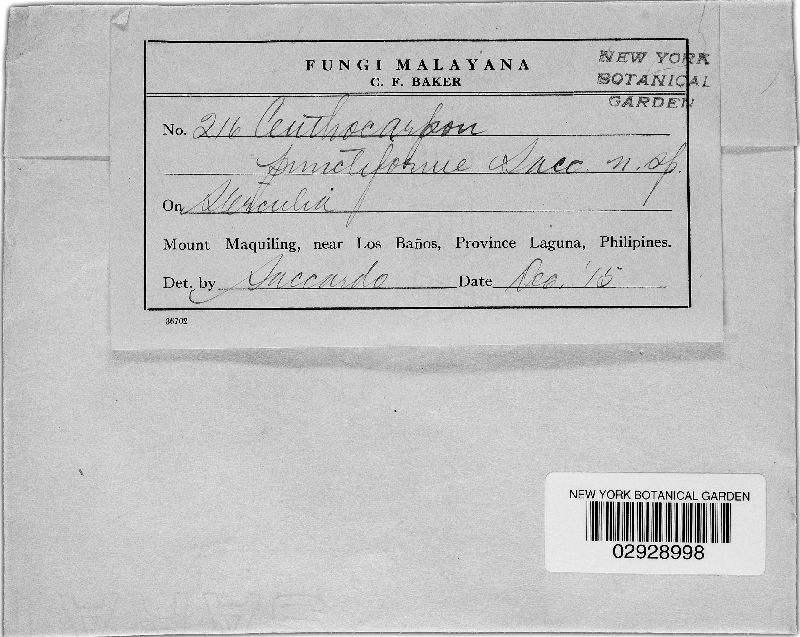 FUNGI MALAYANA
C. F. BAKER
NEW YORK
BOTANICAL
GARDEN
No. 216 Ceuthocarpon
punctiforme Sacc. n. sp.
On Sterculia
Mount Maquiling, near Los Baños, Province Laguna, Philipines.
Det. by Saccardo Date Dec. '15
36702
NEW YORK BOTANICAL GARDEN
02928998